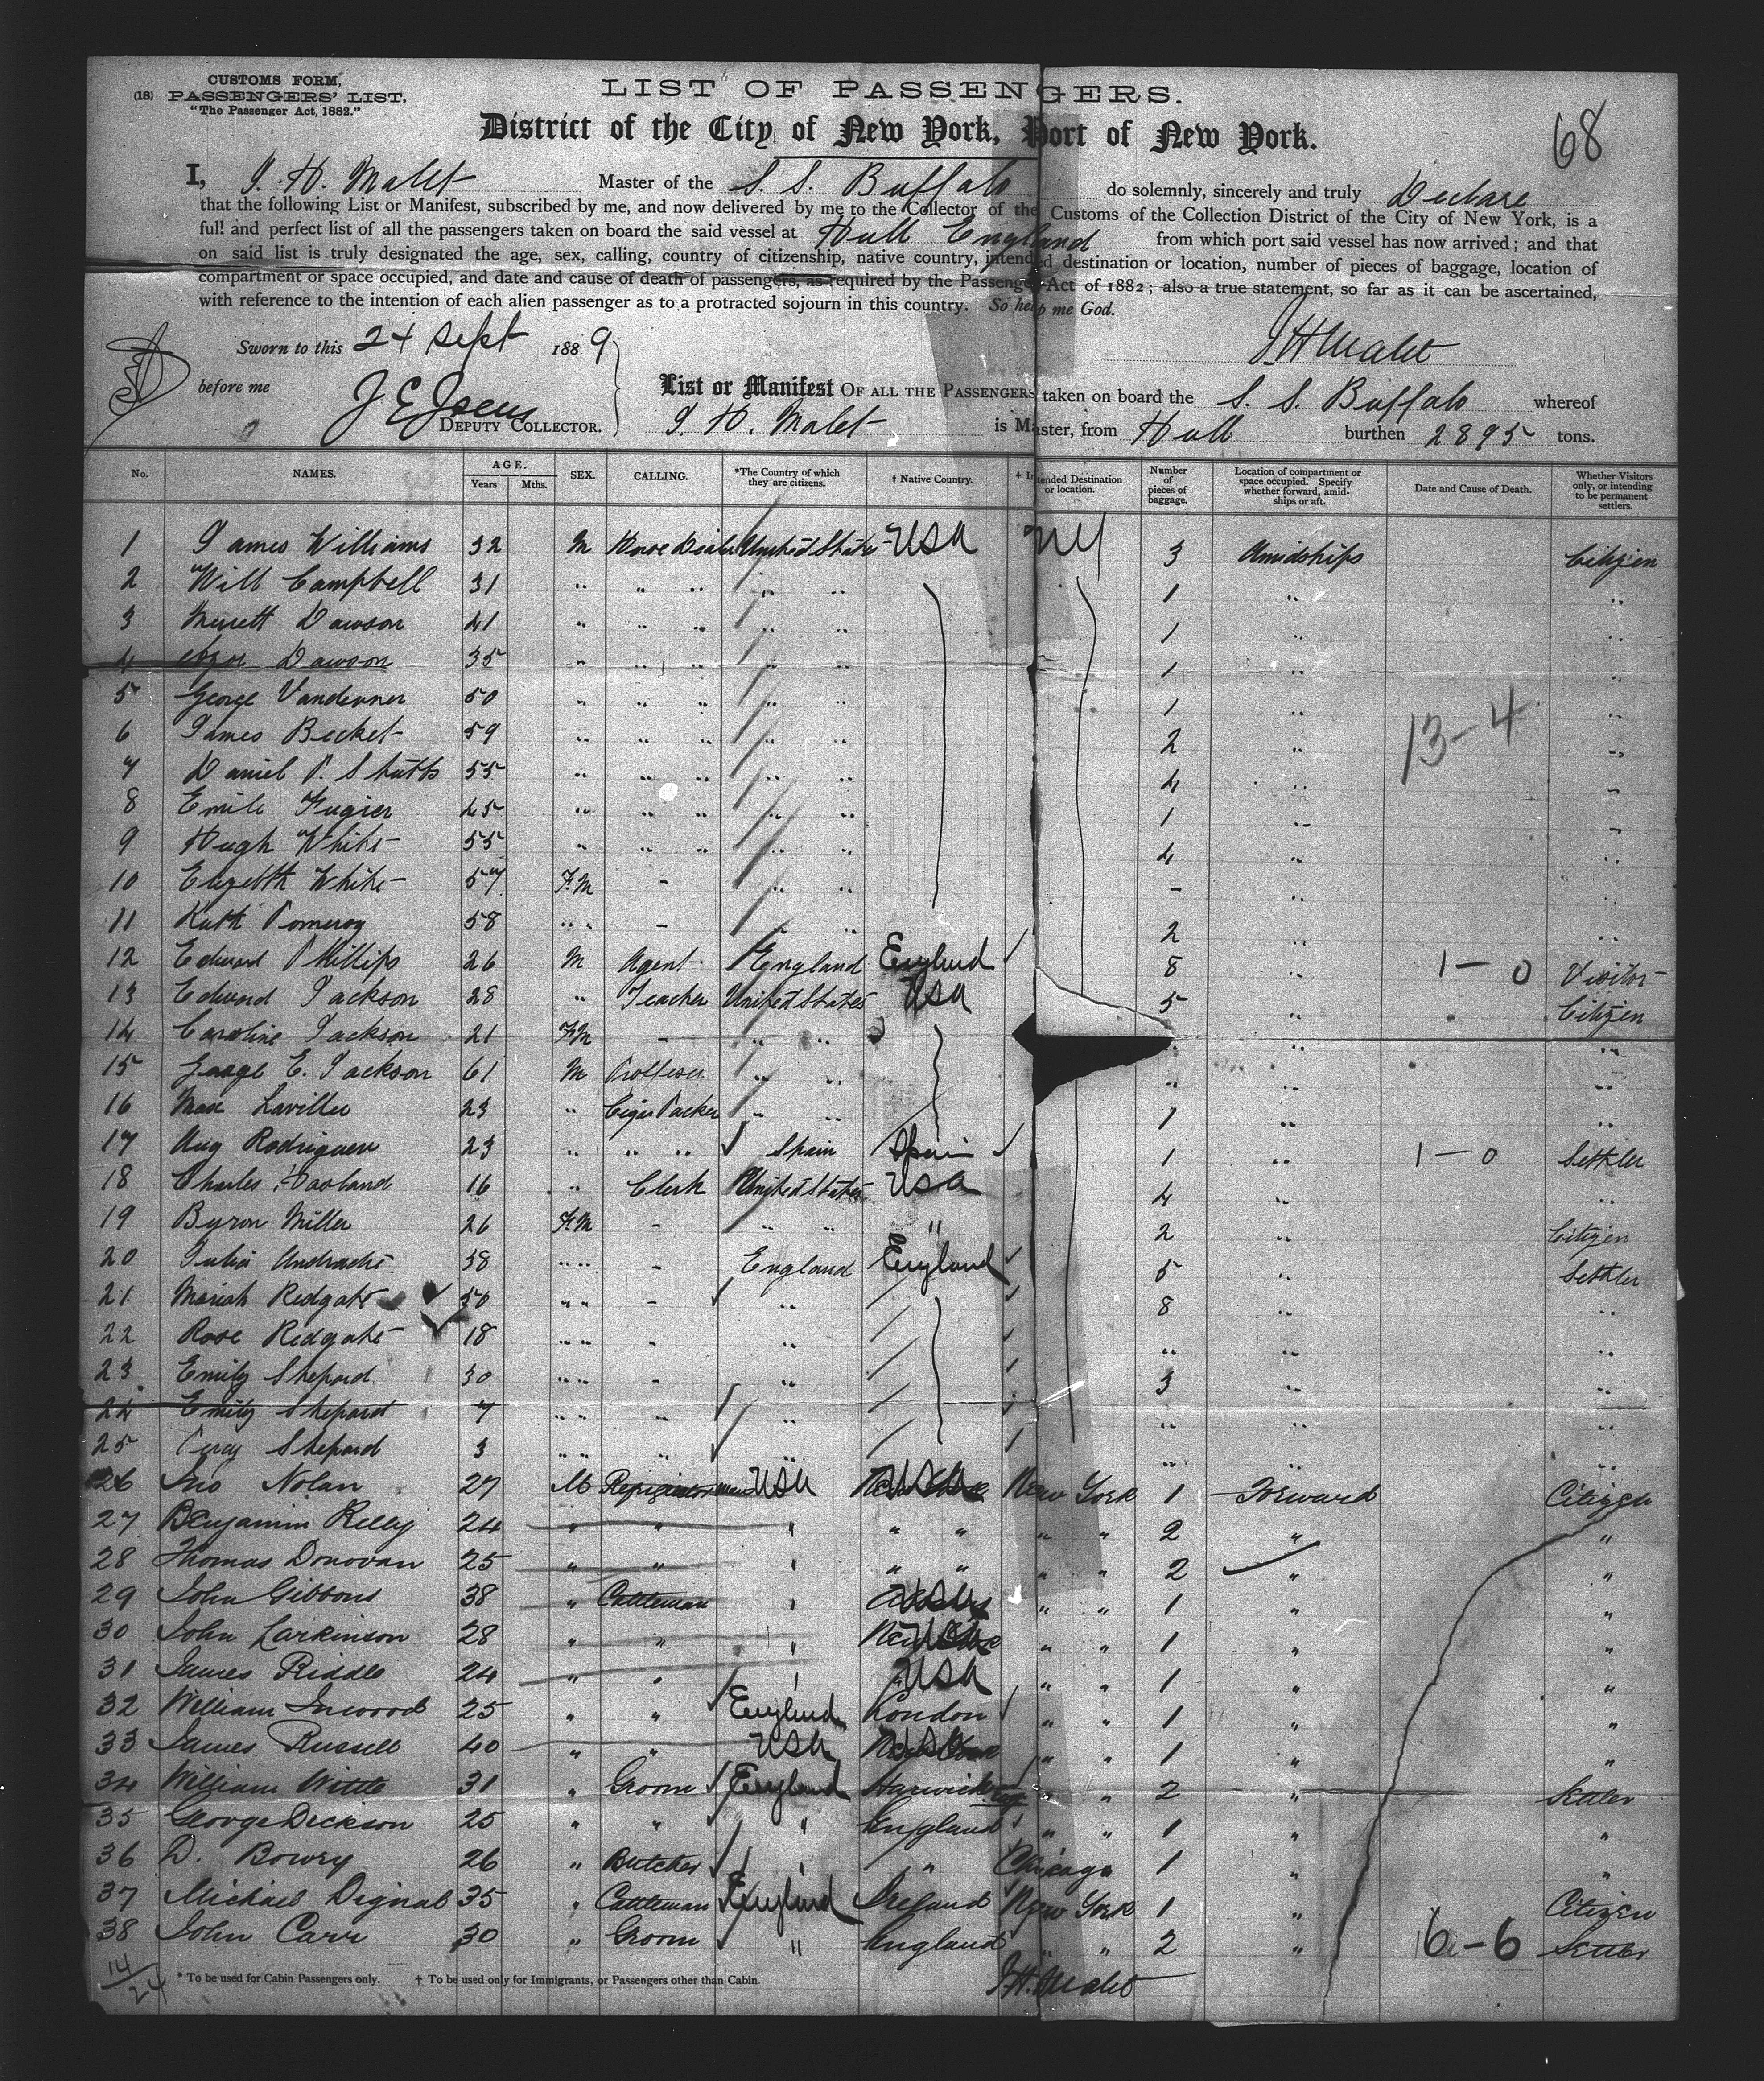 CUSTOMS FORM,
(18) PASSENGERS' LIST.
"The Passenger Act, 1882."
LIST OF PASSENGERS.
District of the City of New York, Port of New York.
68
I, J. H. Malet Master of the S. S. Buffalo do solemnly, sincerely and truly Declare
that the following List or Manifest, subscribed by me, and now delivered by me to the Collector of the Customs of the Collection District of the City of New York, is a
full and perfect list of all the passengers taken on board the said vessel at Hull England from which port said vessel has now arrived; and that
on said list is truly designated the age, sex, calling, country of citizenship, native country, intended destination or location, number of pieces of baggage, location of
compartment or space occupied, and date and cause of death of passengers, as required by the Passenger Act of 1882; also a true statement, so far as it can be ascertained,
with reference to the intention of each alien passenger as to a protracted sojourn in this country. So help me God.
Sworn to this 24 Sept 1889
J H Malet
before me
DEPUTY COLLECTOR.
List or Manifest OF ALL THE PASSENGERS taken on board the S. S. Buffalo whereof
J. H. Malet is Master, from Hull burthen 2895 tons.
No. NAMES. AGE. Years Mths. SEX. CALLING. *The Country of which they are citizens. † Native Country. + Intended Destination or location. Number of pieces of baggage. Location of compartment or space occupied. Specify whether forward, amidships or aft. Date and Cause of Death. Whether Visitors only, or intending to be permanent settlers.
1 James Williams 32 M Horse Dealer United States USA NY 3 Amidships Citizen
2 Will Campbell 31 " " " " " 1 " "
3 Dawson 41 " " " " " 1 " "
4 Dawson 35 " " " " " 1 " "
5 George 50 " " " " " 1 " "
6 James Becket 59 " " " " " 2 " "
13-4
7 Daniel P. Shutts 55 " " " " " 4 " "
8 Emile Fugier 45 " " " " " 1 " "
9 Hugh White 55 " " " " " 4 " "
10 Elizabth White 57 FM - " " - " "
11 Ruth Pomeroy 58 " " - " " 2 " "
12 Edward Phillips 26 M Agent England England 8 " 1-0 Visitor
13 Edward Jackson 28 " Teacher United States USA 5 " Citizen
14 Caroline Jackson 21 FM - " " " " "
15 George E. Jackson 61 M Proffesor " " " " "
16 Max 23 " Cigar Packer " " 1 " "
17 Aug 23 " " " Spain Spain 1 " 1-0 Settler
18 Charles 16 " Clerk United States USA 4 " "
19 Byron Miller 26 FM - " " " 2 " Citizen
20 Julia 38 " " - England England 5 " Settler
21 Mariah Redgate 50 " " - " 8 " "
22 Rose Redgate 18 " " - " " " "
23 Emily Shepard 30 " " - " 3 " "
24 Emily Shepard 7 " " " " " " "
25 Percy Shepard 3 " " " " " " "
26 Jno Nolan 27 M USA USA New York 1 Forward Citizen
27 Benjamin Reley 24 " " " " " " " 2 " "
28 Thomas Donovan 25 " " " " " " " 2 " "
29 John Gibbons 38 " Cattleman " USA " " 1 " "
30 John Larkinson 28 " " " USA " " 1 " "
31 James Riddle 24 " " " USA " " 1 " "
32 William Inwood 25 " " England London " " 1 " "
33 James Russell 40 " " USA USA " " 1 " "
34 William Wittle 31 " Groom England Harwich Eng " " 2 " Settler
35 George Dickson 25 " " " England " " 1 " "
36 D. Bowey 26 " Butcher " " Chicago 1 " "
37 Michael Dignal 35 " Cattleman England Ireland New York 1 " Citizen
38 John Carr 30 " Groom " England " " 2 " 6-6 Settler
14/24
* To be used for Cabin Passengers only. † To be used only for Immigrants, or Passengers other than Cabin.
J. H. Malet